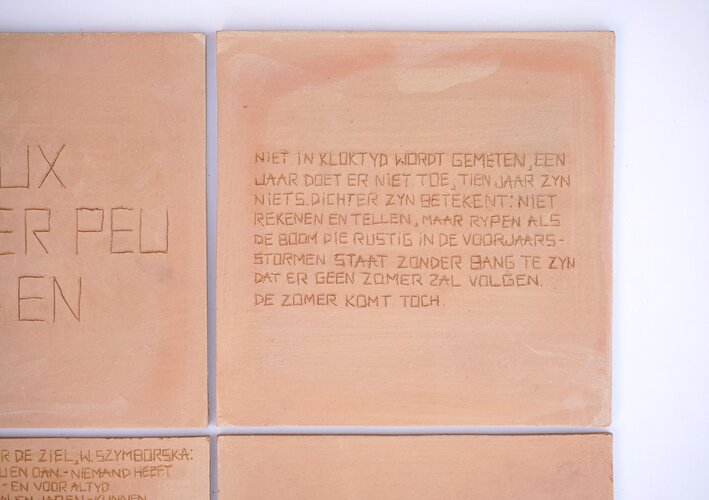 UX
ER PEU
EN
NIET IN KLOKTYD WORDT GEMETEN, EEN
JAAR DOET ER NIET TOE, TIEN JAAR ZYN
NIETS. DICHTER ZYN BETEKENT: NIET
REKENEN EN TELLEN, MAAR RYPEN ALS
DE BOOM DIE RUSTIG IN DE VOORJAARS-
STORMEN STAAT ZONDER BANG TE ZYN
DAT ER GEEN ZOMER ZAL VOLGEN.
DE ZOMER KOMT TOCH.
R DE ZIEL, W. SZYMBORSKA:
U EN DAN.- NIEMAND HEEFT
- EN VOOR ALTYD